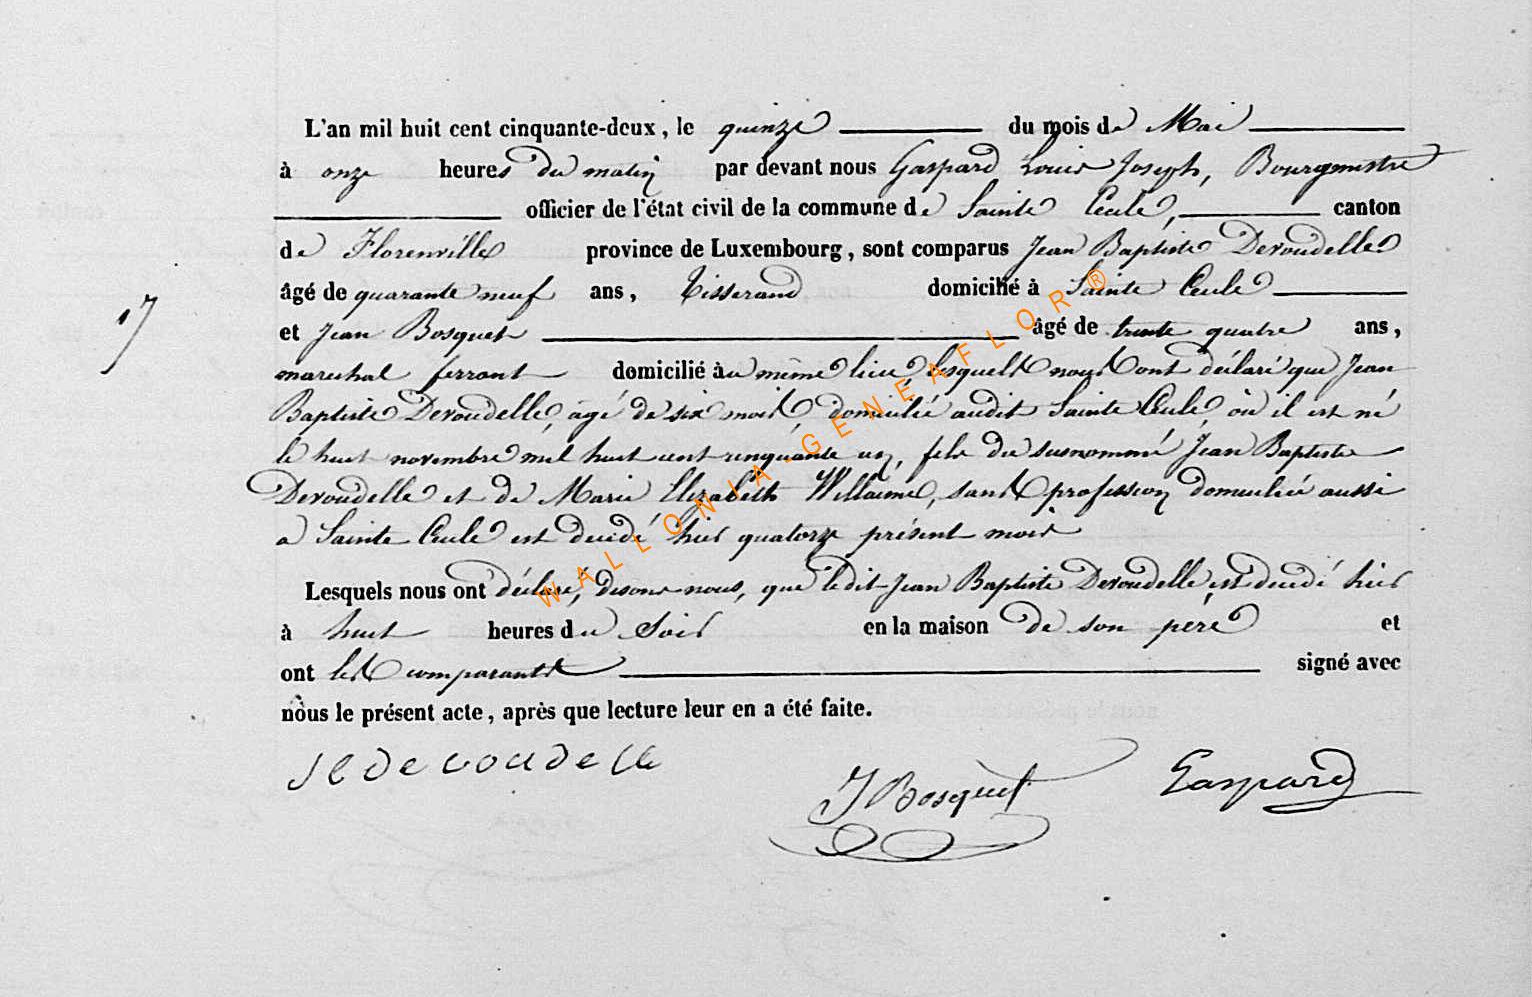 L'an mil huit cent cinquante-deux, le quinze du mois de Mai
à onze heures du matin par devant nous Gaspard Louis Joseph, Bourgmestre
officier de l'état civil de la commune de Sainte Cecile, canton
de Florenville province de Luxembourg, sont comparus Jean Baptiste Devoudelle
âgé de quarante neuf ans, Tisserand domicilié à Sainte Cecile
17
et Jean Bosquet âgé de trente quatre ans,
marechal ferrant domicilié au même lieu, lesquels nous ont déclaré que Jean
Baptiste Devoudelle, âgé de six mois, domicilié audit Sainte Cecile, où il est né
le huit novembre mil huit cent cinquante un, fils du susnommé Jean Baptiste
Devoudelle et de Marie Elizabeth Willaime, sans profession domiciliée aussi
a Sainte Cecile est décédé hier quatorze présent mois
Lesquels nous ont déclaré, disons-nous, que ledit Jean Baptiste Devoudelle est décédé hier
à huit heures du Soir en la maison de son père et
ont les comparants signé avec
nous le présent acte, après que lecture leur en a été faite.
J B Devoudelle
J Bosquet
Gaspard
WALLONIA-GENEAFLOR ®